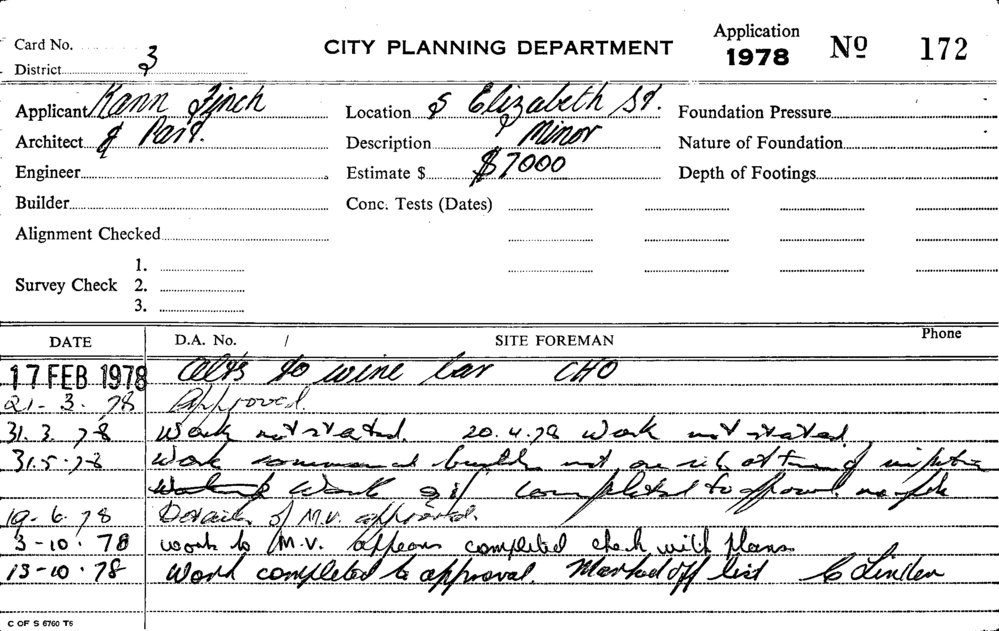 Card No.
District 3
CITY PLANNING DEPARTMENT
Application
1978 Nº 172
Applicant Kann Finch
Architect & Part.
Engineer
Builder
Alignment Checked
Survey Check 1.
2.
3.
Location Elizabeth St.
Description Minor
Estimate $ $7000
Conc. Tests (Dates)
Foundation Pressure
Nature of Foundation
Depth of Footings
DATE D.A. No. / SITE FOREMAN Phone
17 FEB 1978 Alts to wine bar CHO
21-3.78 Approved.
31.3.78 Work not started. 20.4.78 Work not started
31.5.78 Work commenced builder not on site at time of inspection
Work completed to approval
19-6.78 Details of M.V. approved.
3-10.78 work to M.V. appears completed check with plans
13-10.78 Work completed to approval. Marked off list C Linden
C OF S 6760 T5